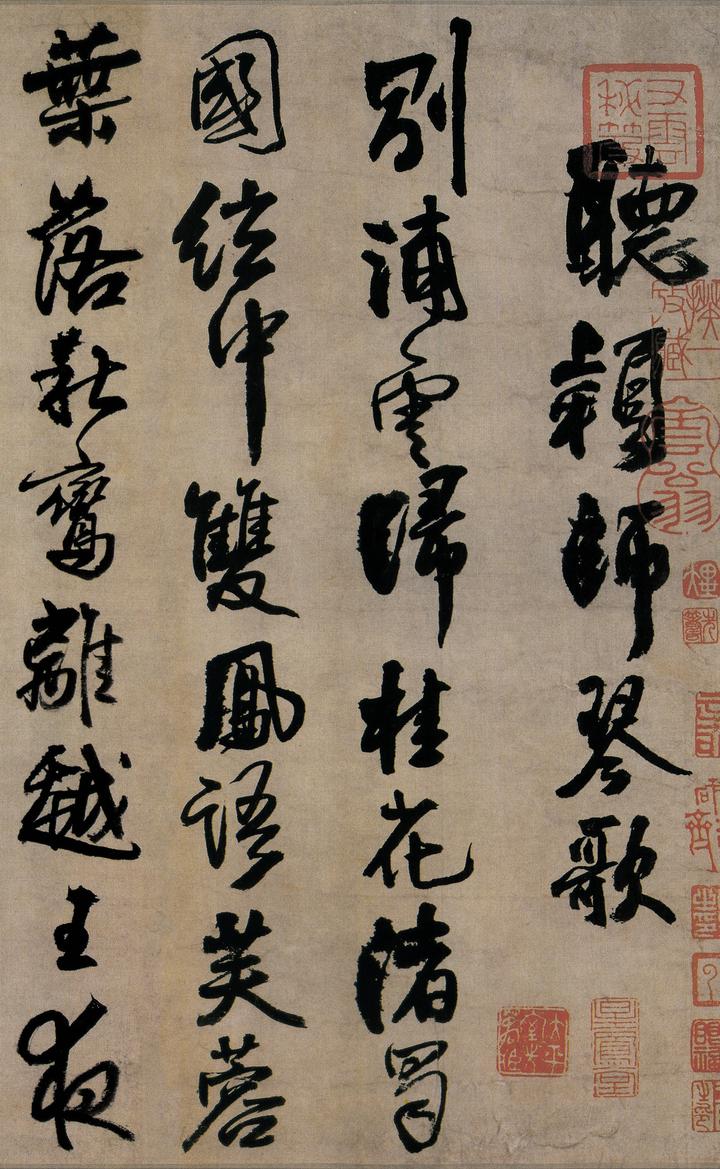 聽穎師琴歌
別浦雲歸桂花渚蜀
國絃中雙鳳語芙蓉
葉落秋鸞離越王夜